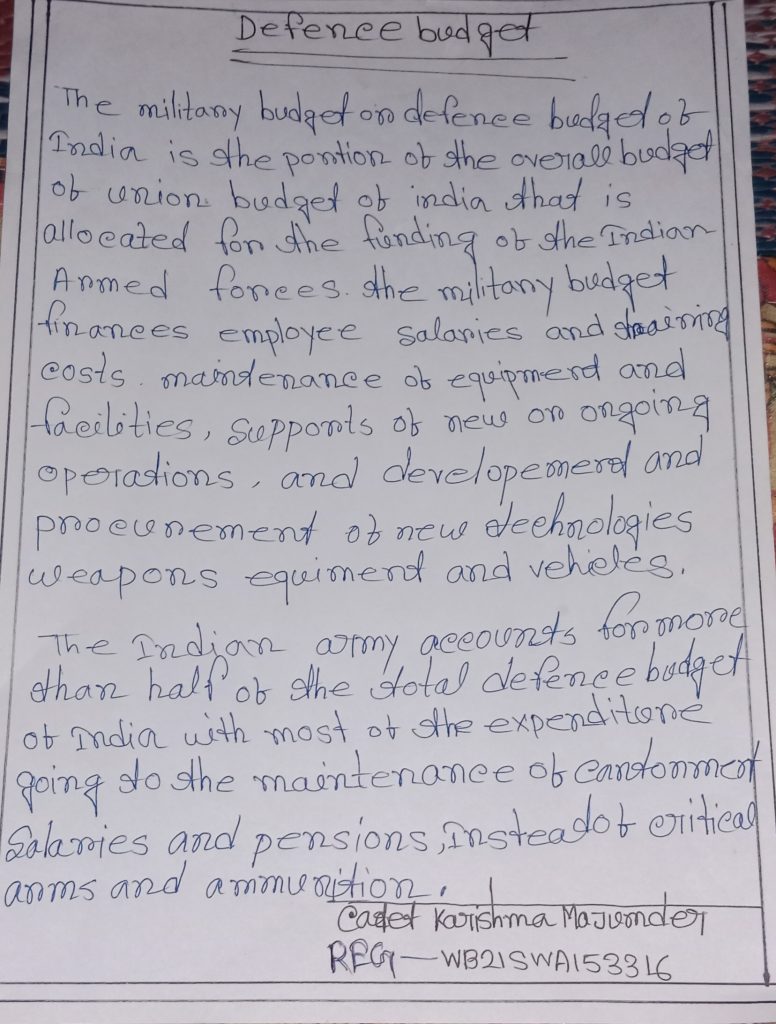 Defence budget
The military budget or defence budget of
India is the portion of the overall budget
of union budget of india that is
allocated for the funding of the Indian
Armed forces. the military budget
finances employee salaries and training
costs. maintenance of equipment and
facilities, supports of new or ongoing
operations, and developement and
procurement of new technologies
weapons equiment and vehicles.
The Indian army accounts for more
than half of the total defence budget
of India with most of the expenditure
going to the maintenance of cantonment
Salaries and pensions, Instead of critical
arms and ammunition.
Cadet Karishma Majumder
REG — WB21SWA153316